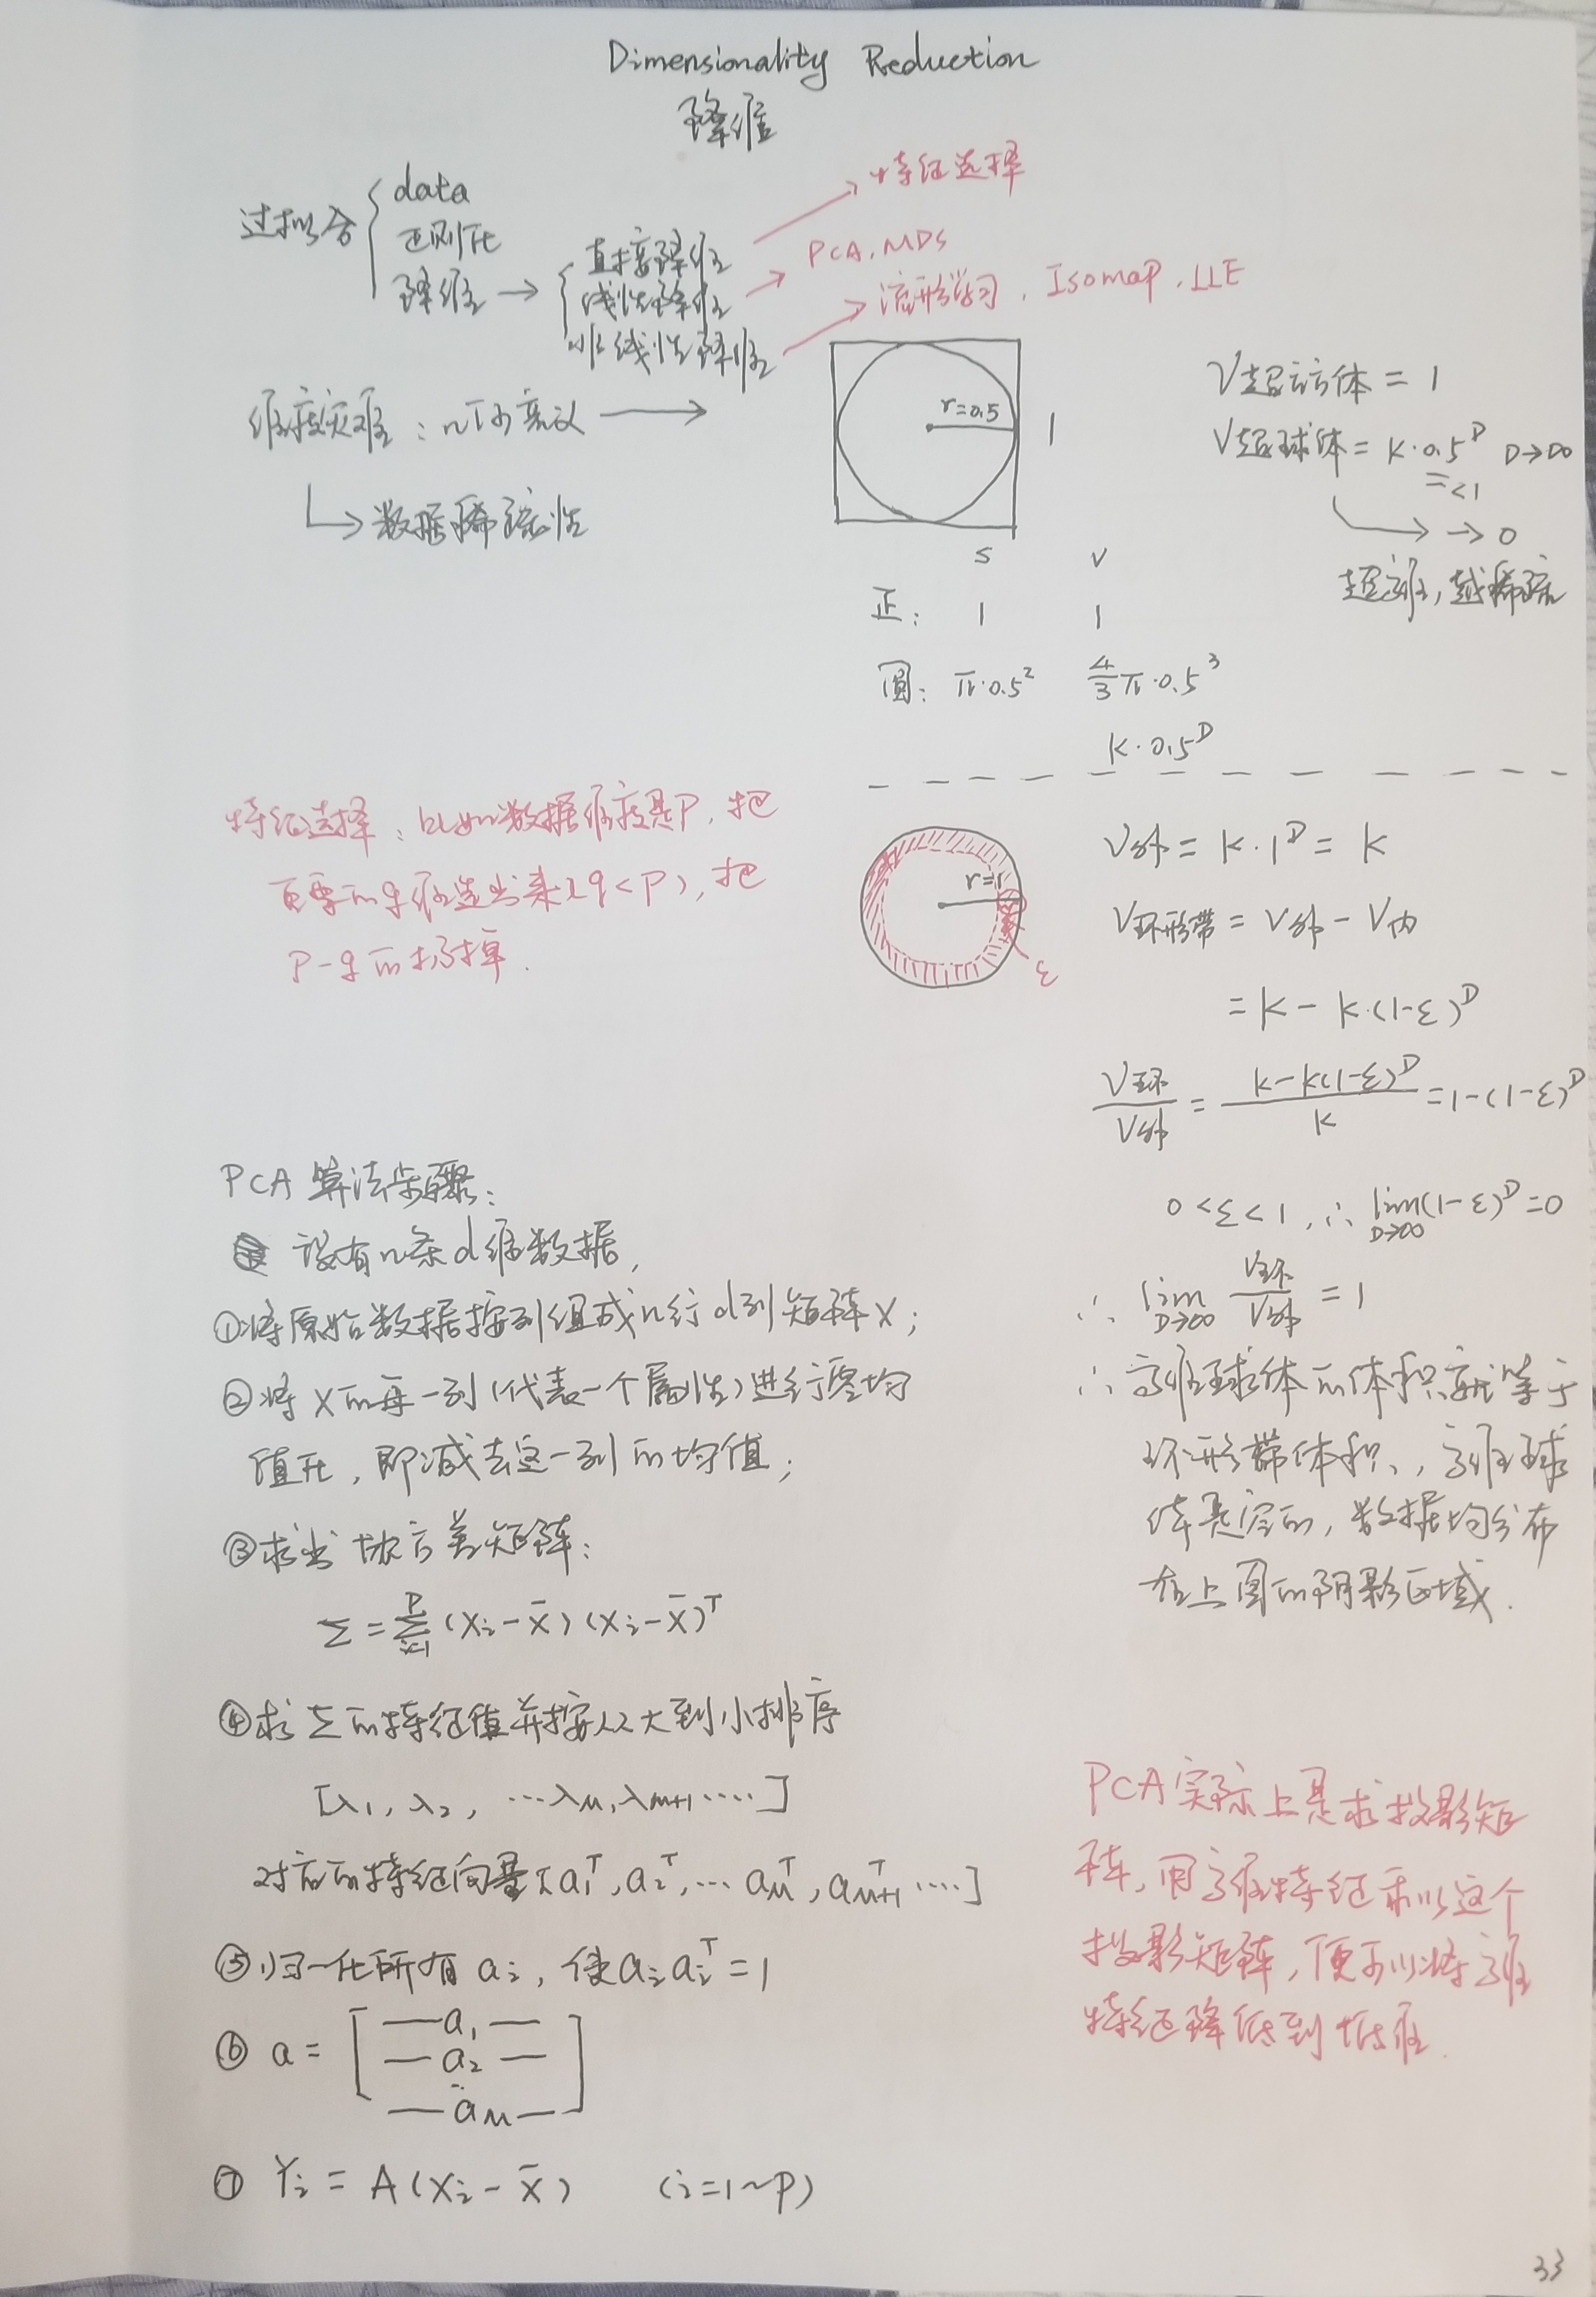 Dimensionality Reduction
降维
过拟合
data
正则化
降维 →
直接降维
线性降维
非线性降维
特征选择
PCA, MDS
流形学习, Isomap, LLE
维度灾难: 几何意义
数据稀疏性
r=0.5
1
S V
正: 1 1
圆: π·0.5² 4/3 π·0.5³
K·0.5^D
V超方体 = 1
V超球体 = K·0.5^D D→∞
=<1
→ 0
超维, 越稀疏
特征选择: 比如数据维度是P, 把
重要的q维选出来(q<P), 把
P-q的扔掉.
r=1
ε
V外 = K·1^D = K
V环形带 = V外 - V内
= K - K·(1-ε)^D
V环/V外 = (K-K(1-ε)^D)/K = 1-(1-ε)^D
0<ε<1, ∴ lim D→∞ (1-ε)^D = 0
∴ lim D→∞ V环/V外 = 1
∴ 高维球体的体积就等于
环形带体积, 高维球
体是空的, 数据均分布
在上图的阴影区域.
PCA 算法步骤:
设有n条d维数据,
①将原始数据按列组成n行d列矩阵X;
②将X的每一列(代表一个属性)进行零均
值化, 即减去这一列的均值;
③求出协方差矩阵:
Σ = Σ_{i=1}^{P} (Xi - X̄)(Xi - X̄)^T
④求Σ的特征值并按从大到小排序
[λ1, λ2, ···λM, λM+1 ····]
对应的特征向量[a1^T, a2^T, ··· aM^T, aM+1^T ····]
⑤归一化所有ai, 使ai ai^T = 1
⑥ a = [ —a1— 
—a2—
··
—aM— ]
⑦ Yi = A(Xi - X̄) (i=1~P)
PCA实际上是求投影矩
阵, 用高维特征乘以这个
投影矩阵, 便可以将高维
特征降低到低维.
33